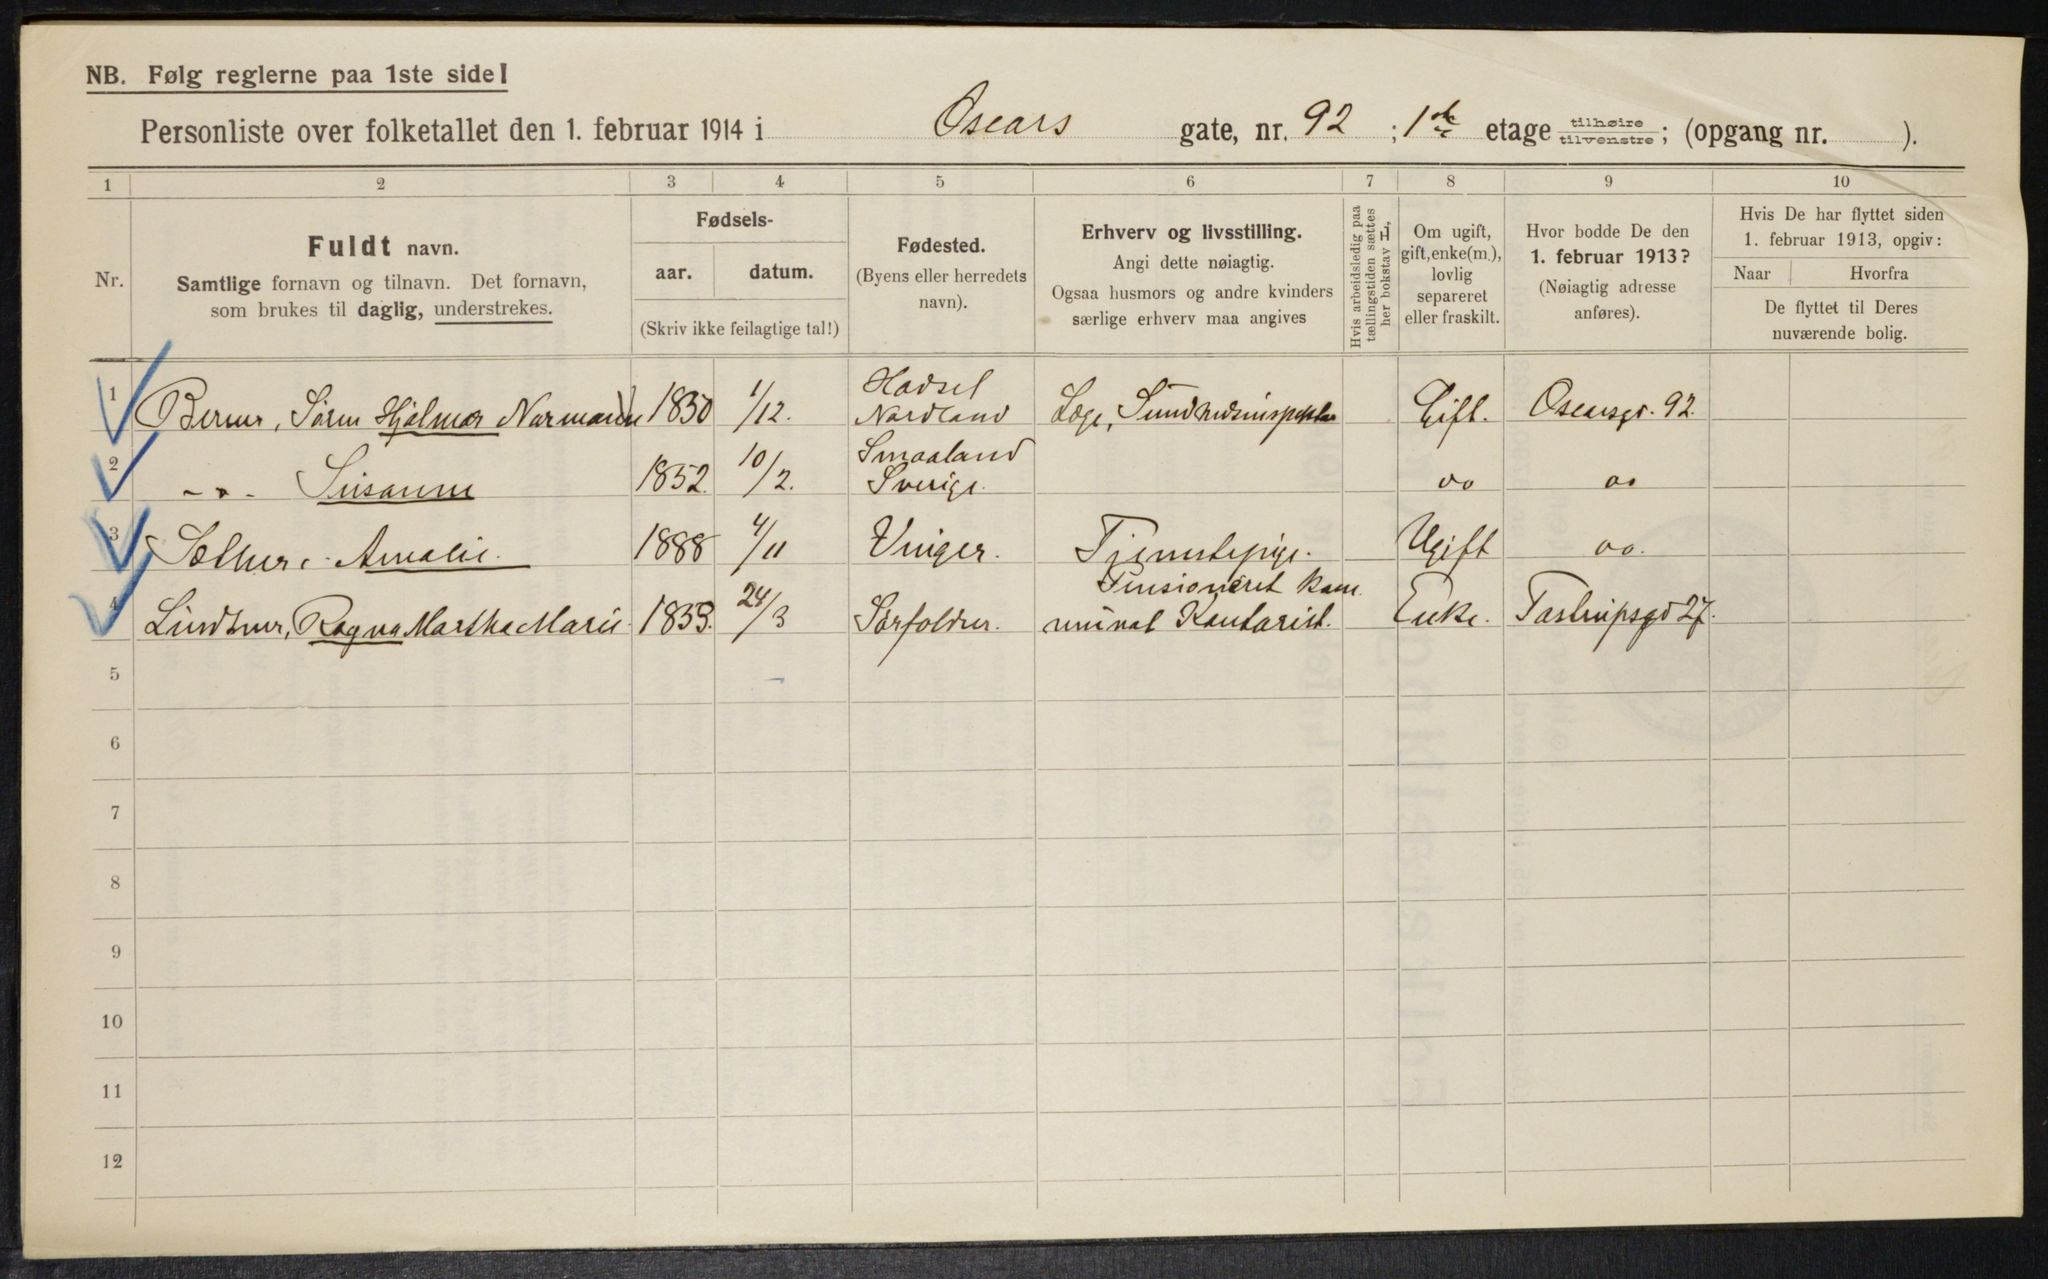 NB. Følg reglerne paa 1ste side!
Personliste over folketallet den 1. februar 1914 i Oscars gate, nr. 92 ; 1ste etage tilhøire tilvenstre; (opgang nr. ).
1 2 3 4 5 6 7 8 9 10
Nr.
Fuldt navn.
Samtlige fornavn og tilnavn. Det fornavn,
som brukes til daglig, understrekes.
Fødsels-
aar. datum.
(Skriv ikke feilagtige tal!)
Fødested.
(Byens eller herredets
navn).
Erhverv og livsstilling.
Angi dette nøiagtig.
Ogsaa husmors og andre kvinders
særlige erhverv maa angives
Hvis arbeidsledig paa
tællingstiden sættes
her bokstav L,
Om ugift,
gift, enke(m.),
lovlig
separeret
eller fraskilt.
Hvor bodde De den
1. februar 1913?
(Nøiagtig adresse
anføres).
Hvis De har flyttet siden
1. februar 1913, opgiv:
Naar Hvorfra
De flyttet til Deres
nuværende bolig.
1 Berner, Sörm Hjalmar Normann 1850 1/12. Hadsel Nordland Læge, Sundhedsinspektør Gift. Oscarsgt. 92.
2 -"- Susanne 1852. 10/2. Smaaland Sverige. oo oo
3 Sæther, Amalie. 1888 4/11 Vinger. Tjenestepige. Ugift oo.
4 Lindtner, Ragna Martha Marie. 1833. 24/3 Sørfolden. Pensioneret kom munal Kontorist. Enke. Tostrupsgd 27.
5
6
7
8
9
10
11
12